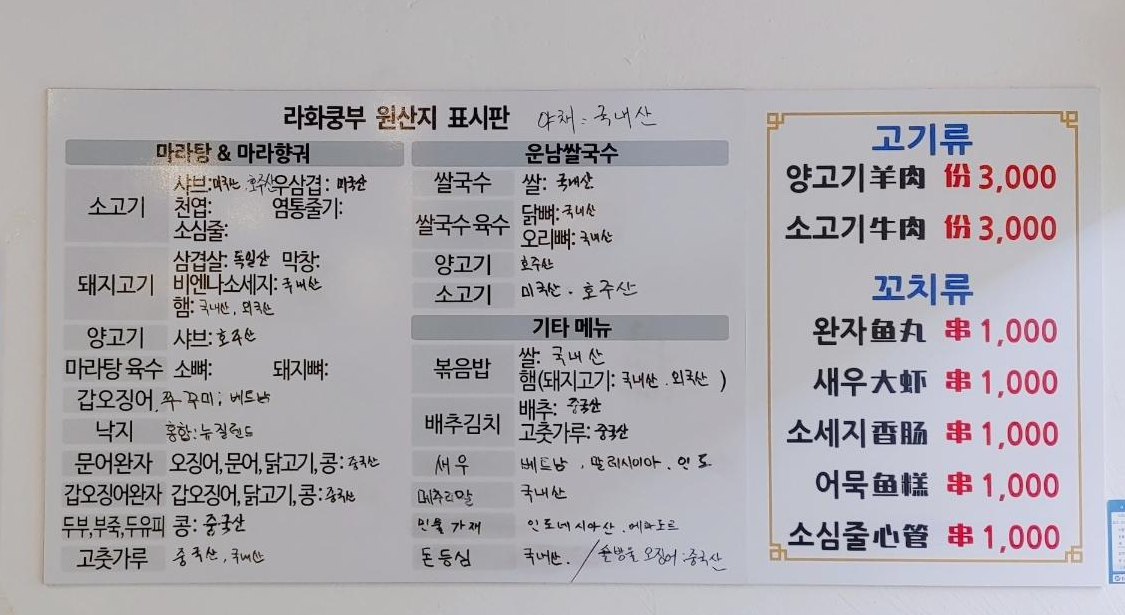 라화쿵부 원산지 표시판 야채: 국내산
마라탕 & 마라향궈
소고기 샤브:미국산 호주산 우삼겹: 미국산
천엽: 염통줄기:
소심줄:
돼지고기 삼겹살: 독일산 막창:
비엔나소세지: 국내산
햄: 국내산, 외국산
양고기 샤브: 호주산
마라탕 육수 소뼈: 돼지뼈:
갑오징어, 쭈꾸미; 베트남
낙지 홍합: 뉴질랜드
문어완자 오징어, 문어, 닭고기, 콩: 중국산
갑오징어완자 갑오징어, 닭고기, 콩: 중국산
두부,부죽,두유피 콩: 중국산
고춧가루 중국산, 국내산
운남쌀국수
쌀국수 쌀: 국내산
쌀국수 육수 닭뼈: 국내산
오리뼈: 국내산
양고기 호주산
소고기 미국산. 호주산
기타 메뉴
볶음밥 쌀: 국내산
햄(돼지고기: 국내산. 외국산 )
배추김치 배추: 중국산
고춧가루: 중국산
새우 베트남, 말레이시아. 인도
메추리알 국내산
민물가재 인도네시아산.
돈등심 국내산. / 솔방울오징어:중국산
고기류
양고기羊肉 份 3,000
소고기牛肉 份 3,000
꼬치류
완자鱼丸 串 1,000
새우大虾 串 1,000
소세지香肠 串 1,000
어묵鱼糕 串 1,000
소심줄心管 串 1,000